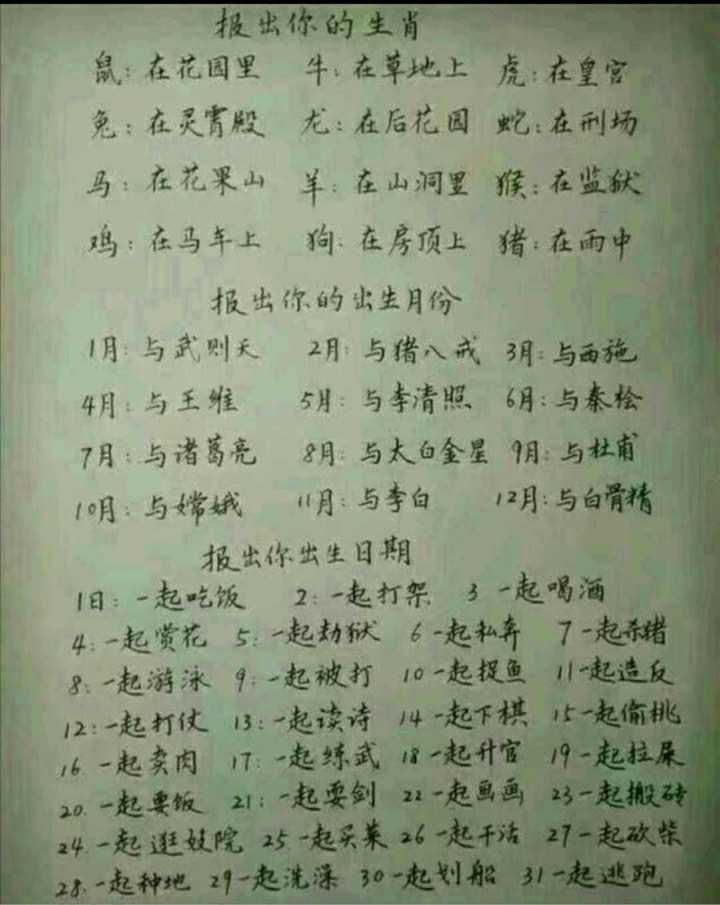 报出你的生肖
鼠：在花园里 牛：在草地上 虎：在皇宫
兔：在灵霄殿 龙：在后花园 蛇：在刑场
马：在花果山 羊：在山洞里 猴：在监狱
鸡：在马车上 狗：在房顶上 猪：在雨中
报出你的出生月份
1月：与武则天 2月：与猪八戒 3月：与西施
4月：与王维 5月：与李清照 6月：与秦桧
7月：与诸葛亮 8月：与太白金星 9月：与杜甫
10月：与嫦娥 11月：与李白 12月：与白骨精
报出你出生日期
1日：一起吃饭 2：一起打架 3 一起喝酒
4：一起赏花 5：一起劫狱 6 一起私奔 7 一起杀猪
8：一起游泳 9：一起被打 10 一起捉鱼 11 一起造反
12：一起打仗 13：一起读诗 14 一起下棋 15 一起偷桃
16. 一起卖肉 17：一起练武 18 一起升官 19 一起拉屎
20. 一起要饭 21：一起耍剑 22 一起画画 23 一起搬砖
24 一起逛妓院 25 一起买菜 26 一起干活 27 一起砍柴
28. 一起种地 29 一起洗澡 30 一起划船 31 一起逃跑